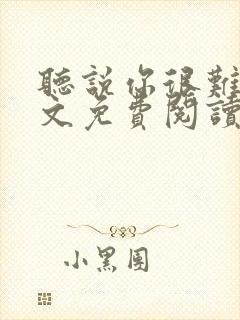 聽說你很難
文免費閱讀
小黑團